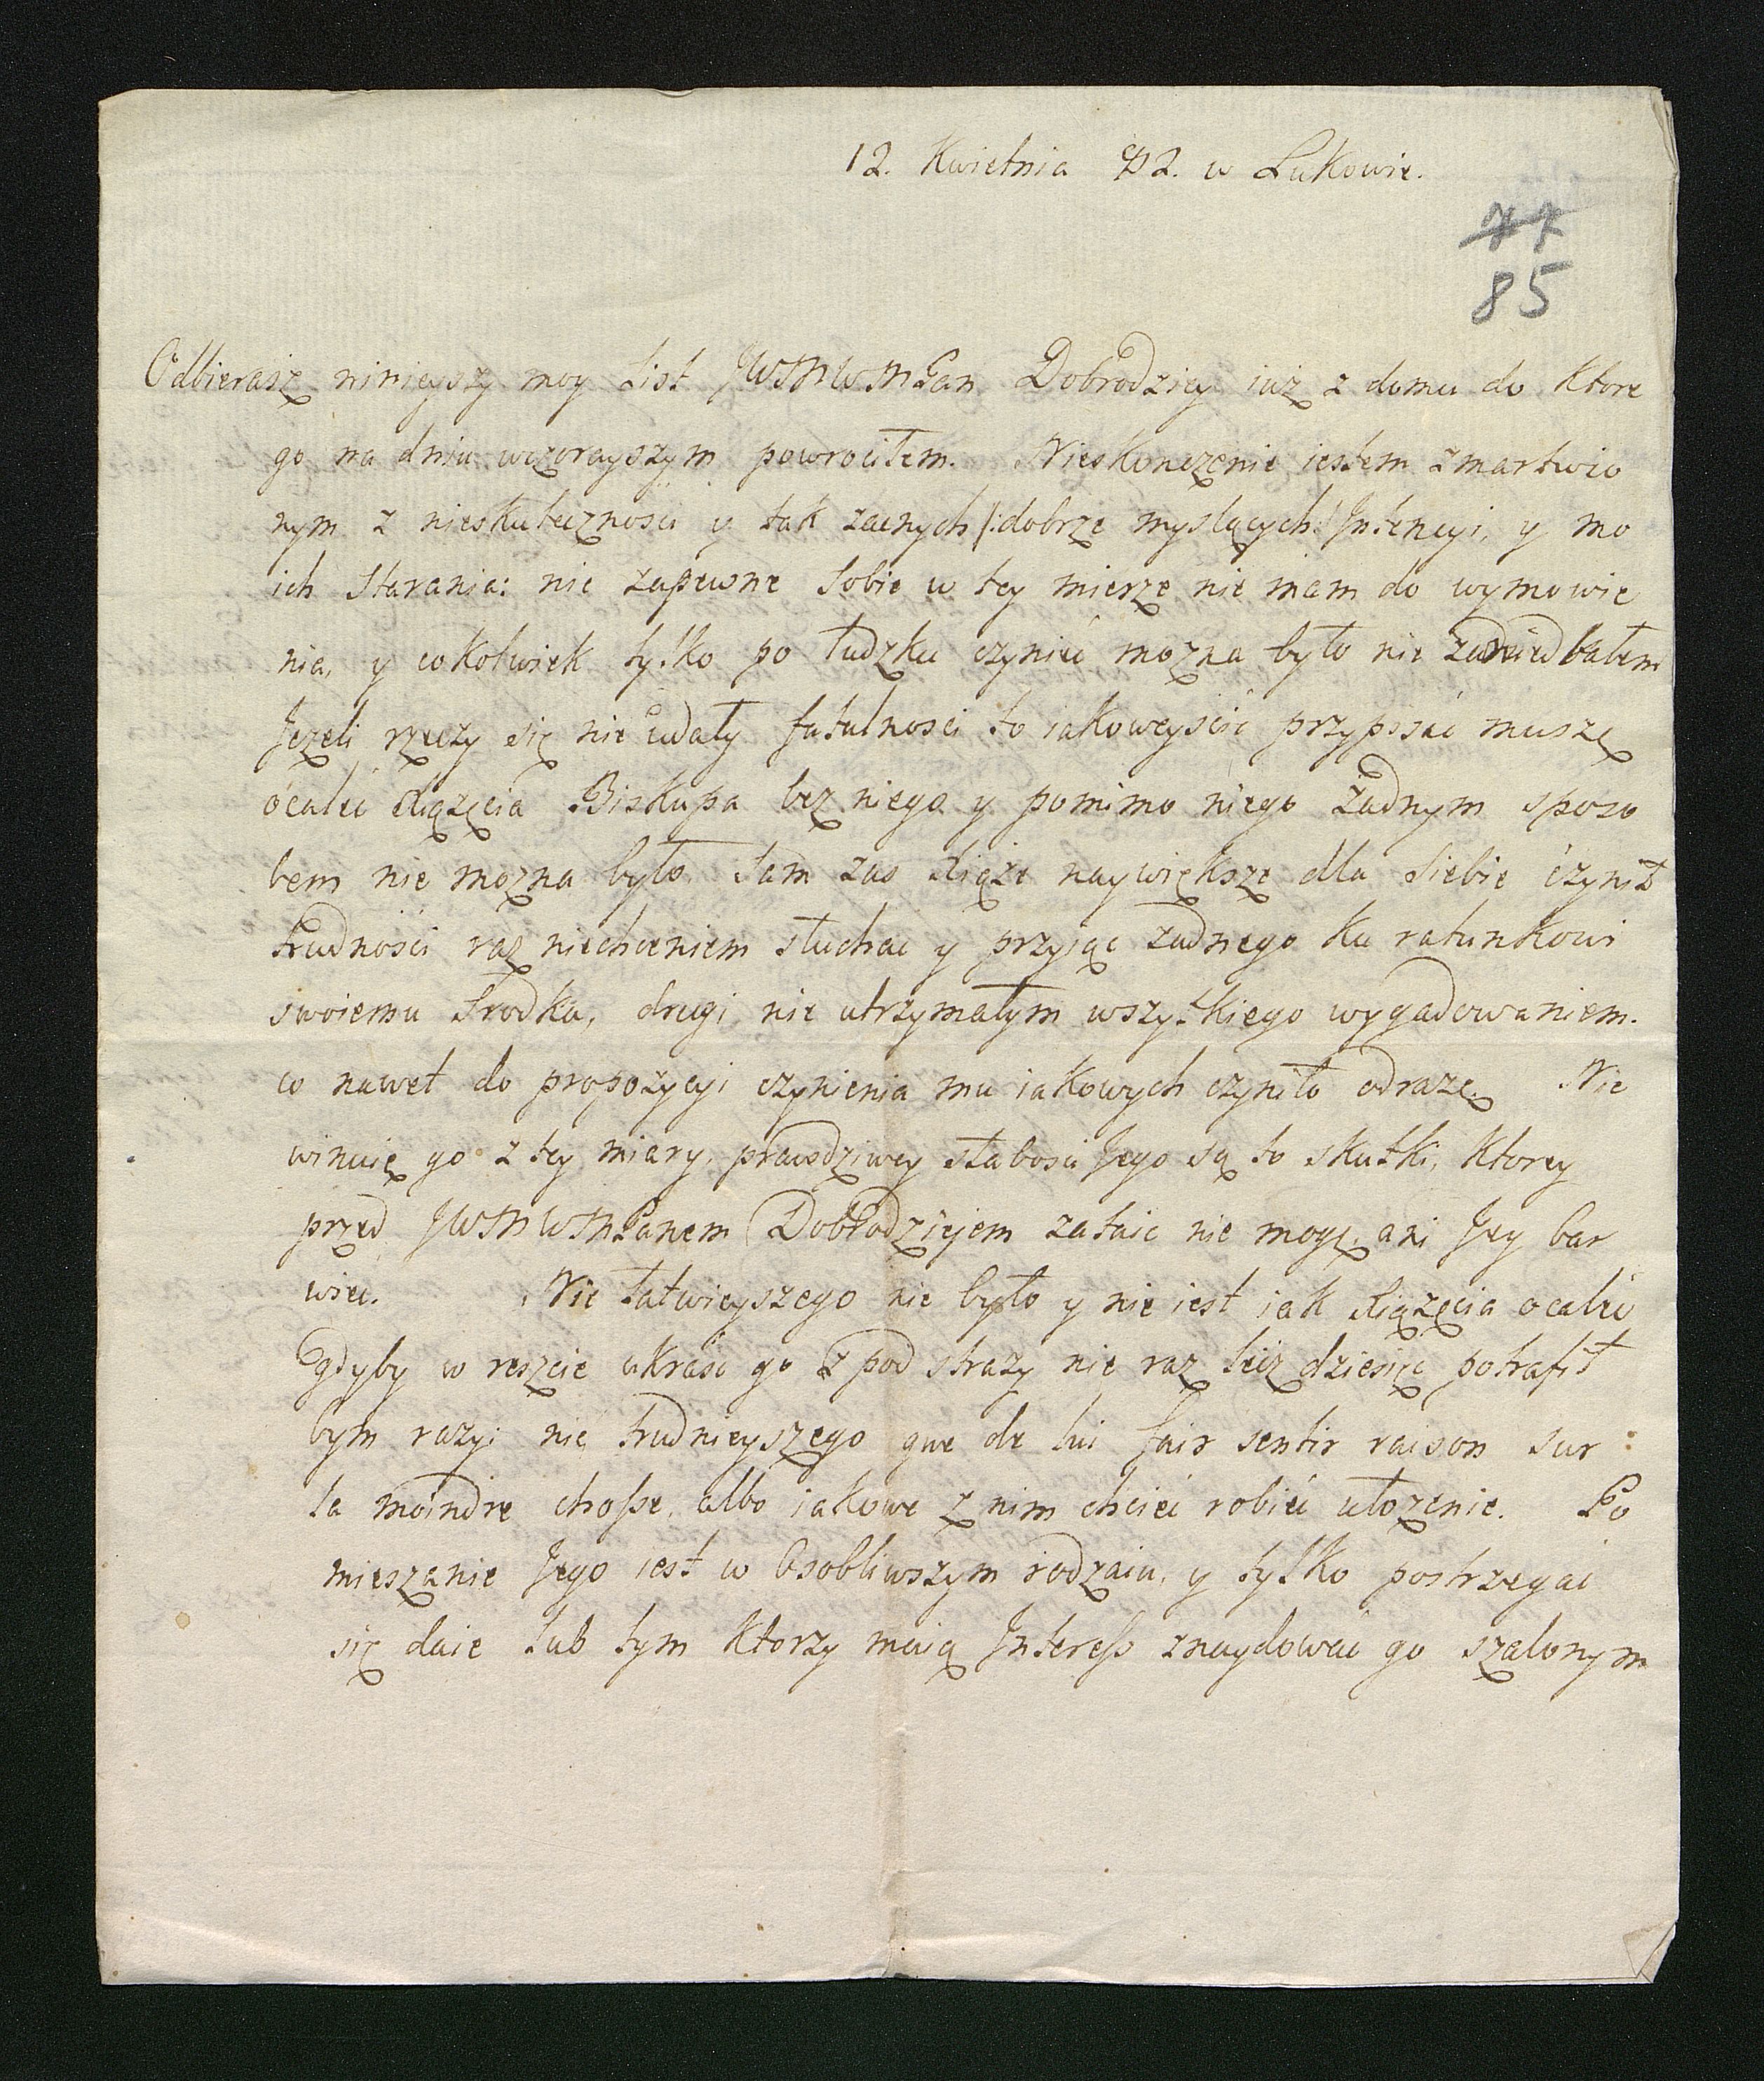 12. Kwietnia 82. w Łukowie.
77
85
Odbierasz ninieyszy moy List JWWMWMPan Dobrodziey iuż z domu do ktore
go na dniu wczorayszym powrociłem. Nieskonczenie iestem zmartwio
nym z nieskutecznosci y tak zacnych /:dobrze myslących:/ Intencyi, y mo
ich starania: nic zapewne sobie w tey mierze nie mam do wymowie
nia, y cokolwiek tylko po ludzku czynić mozna było nie zaniedbałem
Jeżeli rzeczy się nie udały fatalnosci to iakoweyscić przypisać muszę
ocalić Xiążęcia Biskupa bez niego y pomimo niego żadnym sposo
bem nie mozna było. Sam zas Xiąże naywiększe dla siebie czynił
trudności raz niechceniem słuchac y przyjąc żadnego ku ratunkowi
swoiemu srodka, drugi nie utrzymałym wszystkiego wygadowaniem.
co nawet do propozycyi czynienia mu iakowych czyniło odrazę. Nie
winuię go z tey miary, prawdziwey słabosci Jego są to skutki, ktorey
przed JWWMWMPanem Dobrodziejem zataic nie mogę, ani Jey bar
wiec. Nic łatwieyszego nie było y nie iest iak Xiążęcia ocalić
gdyby w reszcie ukraść go z pod strazy nie raz lecz dziesięc potrafił
bym razy; nic trudnieyszego que de lui fair sentir raison sur
la moindre chosse, albo iakowe z nim chcieć robić ułozenie. Po
mieszanie Jego iest w Osobliwszym rodzaiu, y tylko postrzegać
się daie lub tym ktorzy maią Interess znaydować go szalonym